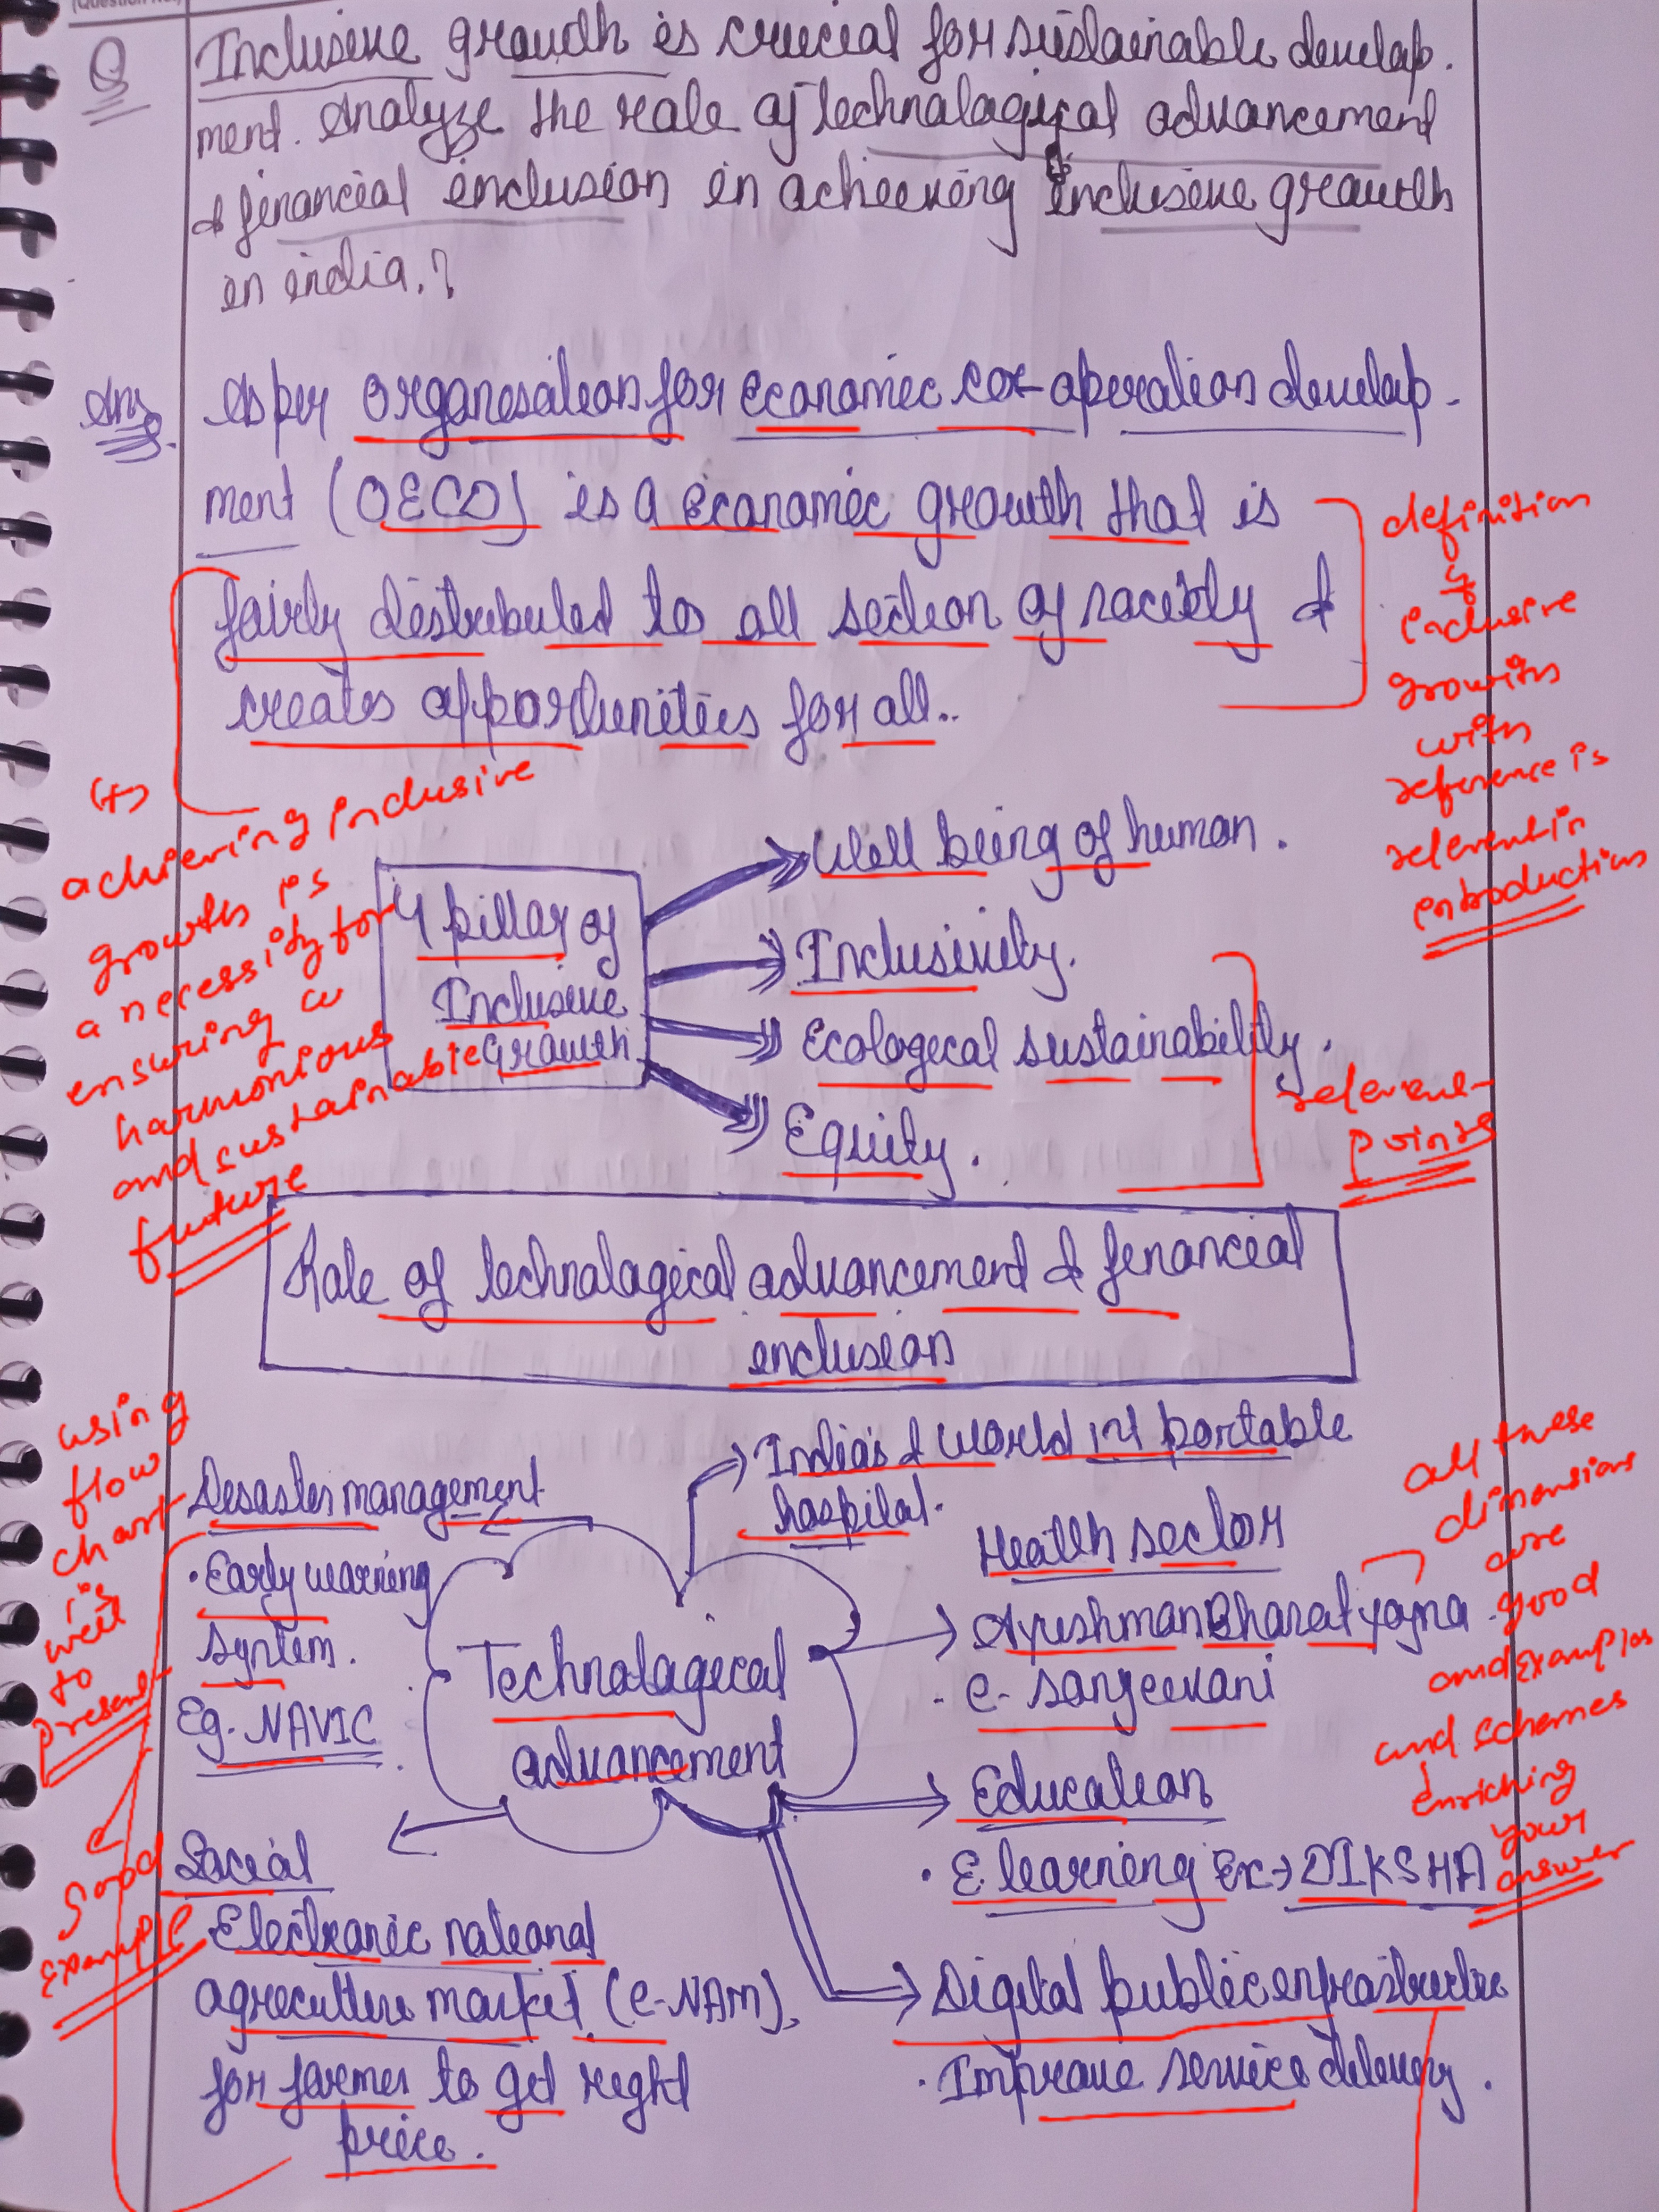 (Question No.)
Q
Inclusive growth is crucial for sustainable develop-
ment. Analyze the role of technological advancement
& financial inclusion in achieving inclusive growth
in india.?
Ans.
As per Organisation for Economic co-operation develop-
ment (OECD) is a economic growth that is
fairly distributed to all section of society &
creates opportunities for all..
definition
of
inclusive
growth
with
reference is
relevent in
introduction
(+)
achieving inclusive
growth is
a necessity for
ensuring a
harmonious
and sustainable
future
4 pillar of
Inclusive
growth
Well being of human.
Inclusively.
Ecological sustainability.
Equity.
relevent
points
Role of technological advancement & financial
inclusion
using
flow
chart
is
well
to
present
Disaster management
• Early warning
system.
Eg. NAVIC
India's & world 1st portable
hospital.
Health sector
Ayushman Bharat yojna
• e-sanjeevani
all these
dimensions
are
good
and examples
and schemes
enriching
your
answer
Technological
advancement
Education
• E learning Ex→ DIKSHA
Social
Electronic national
agriculture market (e-NAM)
for farmer to get right
price.
Good
example
Digital public infrastructure
• Improve service delivery.